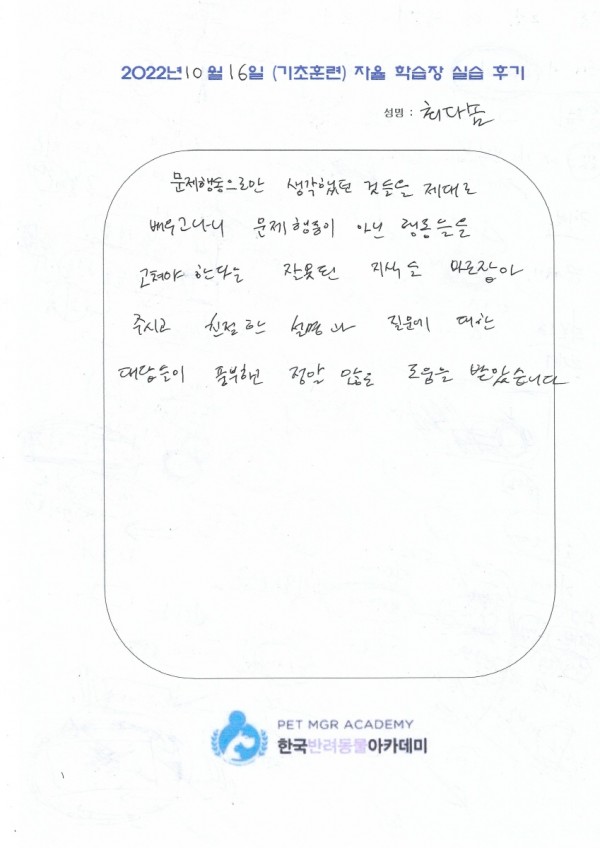 2022년 10월 16일 (기초훈련) 자율 학습장 실습 후기
성명 : 최다솜
문제행동으로만 생각했던 것들을 제대로
배우고나니 문제행동이 아닌 행동들을
고쳐야 한다는 잘못된 지식을 바로잡아
주시고 친절한 설명과 질문에 대한
대답들이 풍부하고 정말 많은 도움을 받았습니다
PET MGR ACADEMY
한국반려동물아카데미